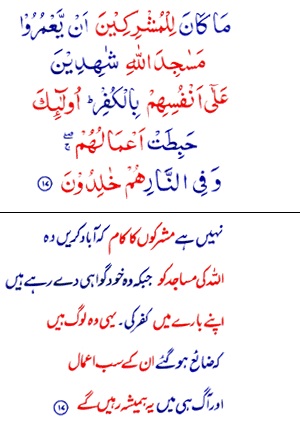 مَا كَانَ لِلۡمُشۡرِكِيۡنَ اَنۡ يَّعۡمُرُوۡا
مَسٰجِدَ اللّٰهِ شٰهِدِيۡنَ
عَلٰٓى اَنۡفُسِهِمۡ بِالۡكُفۡرِ‌ؕ اُولٰۤٮِٕكَ
حَبِطَتۡ اَعۡمَالُهُمۡ ۖۚ
وَ فِى النَّارِ هُمۡ خٰلِدُوۡنَ ﴿۱۷﴾
نہیں ہے مشرکوں کا کام کہ آباد کریں وہ
اللہ کی مساجد کو جبکہ وہ خود گواہی دے رہے ہیں
اپنے بارے میں کفر کی۔ یہی وہ لوگ ہیں
کہ ضائع ہو گئے ان کے سب اعمال
اور آگ ہی میں یہ ہمیشہ رہیں گے ﴿۱۷﴾